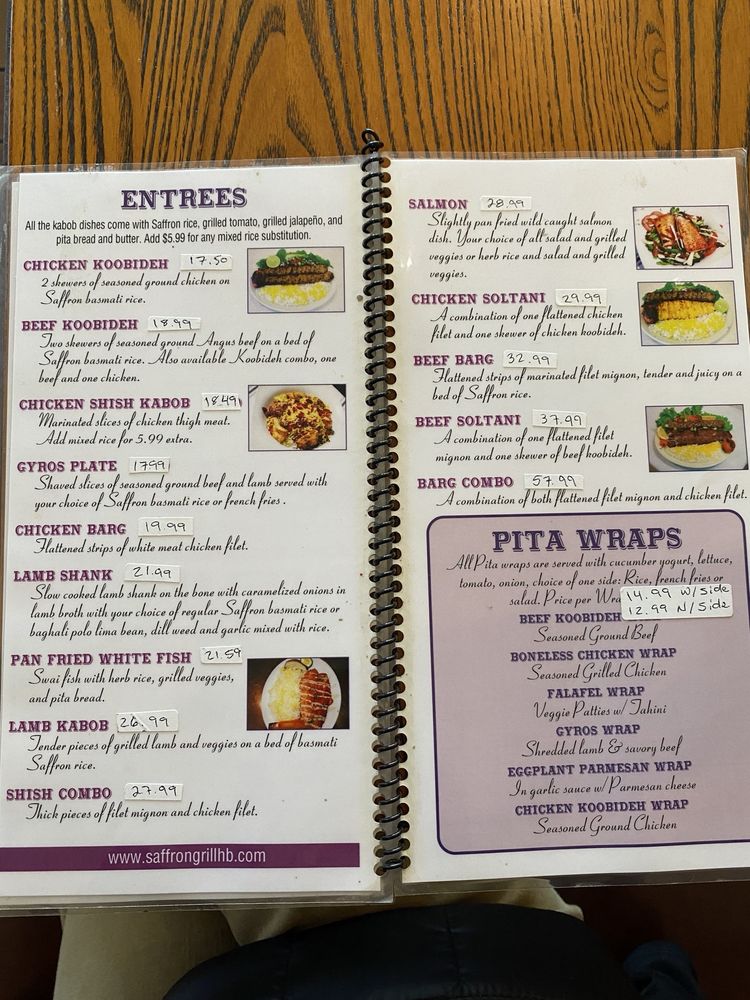 ENTREES
All the kabob dishes come with Saffron rice, grilled tomato, grilled jalapeño, and
pita bread and butter. Add $5.99 for any mixed rice substitution.
CHICKEN KOOBIDEH 17.50
2 skewers of seasoned ground chicken on
Saffron basmati rice.
BEEF KOOBIDEH 18.99
Two skewers of seasoned ground Angus beef on a bed of
Saffron basmati rice. Also available Koobideh combo, one
beef and one chicken.
CHICKEN SHISH KABOB 18.49
Marinated slices of chicken thigh meat.
Add mixed rice for 5.99 extra.
GYROS PLATE 17.99
Shaved slices of seasoned ground beef and lamb served with
your choice of Saffron basmati rice or french fries .
CHICKEN BARG 19.99
Flattened strips of white meat chicken filet.
LAMB SHANK 21.99
Slow cooked lamb shank on the bone with caramelized onions in
lamb broth with your choice of regular Saffron basmati rice or
baghali polo lima bean, dill weed and garlic mixed with rice.
PAN FRIED WHITE FISH 21.59
Swai fish with herb rice, grilled veggies,
and pita bread.
LAMB KABOB 26.99
Tender pieces of grilled lamb and veggies on a bed of basmati
Saffron rice.
SHISH COMBO 27.99
Thick pieces of filet mignon and chicken filet.
www.saffrongrillhb.com
SALMON 28.99
Slightly pan fried wild caught salmon
dish. Your choice of all salad and grilled
veggies or herb rice and salad and grilled
veggies.
CHICKEN SOLTANI 29.99
A combination of one flattened chicken
filet and one skewer of chicken koobideh.
BEEF BARG 32.99
Flattened strips of marinated filet mignon, tender and juicy on a
bed of Saffron rice.
BEEF SOLTANI 37.99
A combination of one flattened filet
mignon and one skewer of beef koobideh.
BARG COMBO 57.99
A combination of both flattened filet mignon and chicken filet.
PITA WRAPS
All Pita wraps are served with cucumber yogurt, lettuce,
tomato, onion, choice of one side: Rice, french fries or
salad. Price per
14.99 w/side
12.99 N/side
BEEF KOOBIDEH
Seasoned Ground Beef
BONELESS CHICKEN WRAP
Seasoned Grilled Chicken
FALAFEL WRAP
Veggie Patties w/ Tahini
GYROS WRAP
Shredded lamb & savory beef
EGGPLANT PARMESAN WRAP
In garlic sauce w/ Parmesan cheese
CHICKEN KOOBIDEH WRAP
Seasoned Ground Chicken